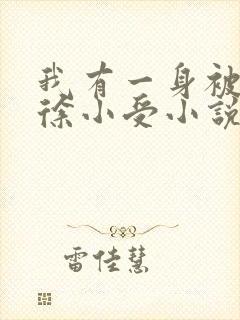 我有一身被
徐小受小説
雷佳慧